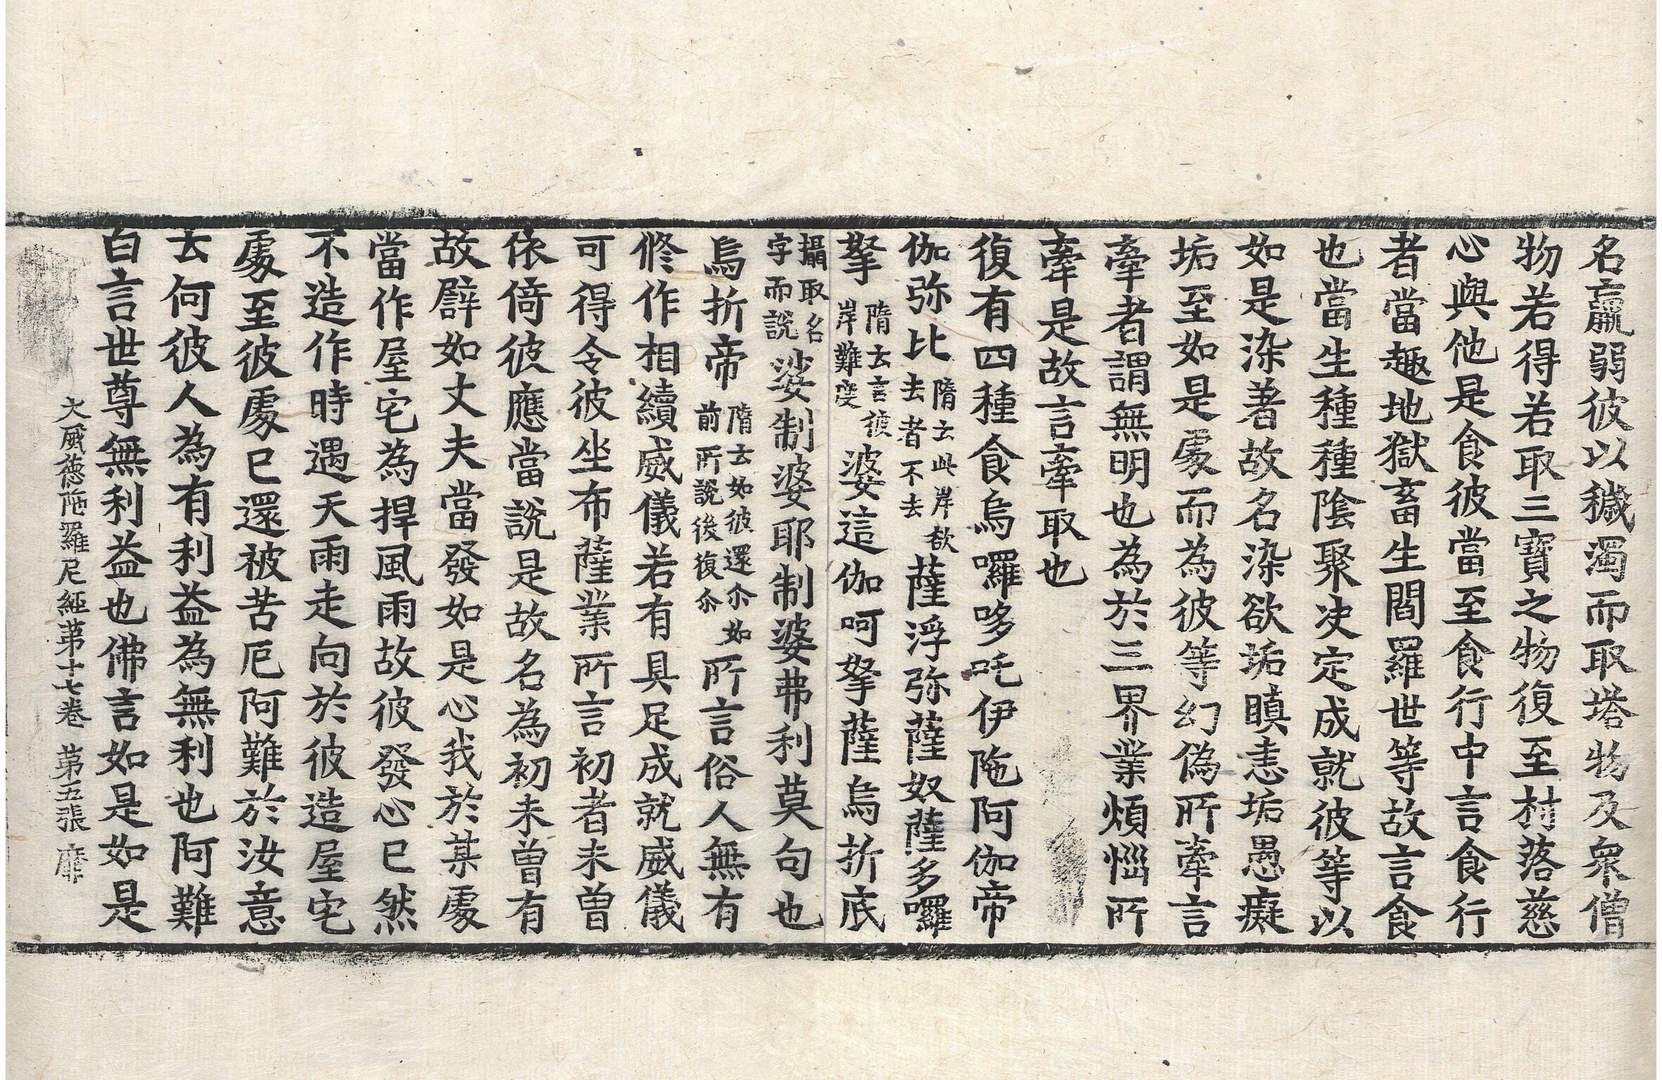 名羸弱彼以穢濁而取塔物及衆僧
物若得若取三寶之物復至村落慈
心與他是食彼當至食行中言食行
者當趣地獄畜生閻羅世等故言食
也當生種種陰聚决定成就彼等以
如是染著故名染欲垢瞋恚垢愚癡
垢至如是處而為彼等幻偽所牽言
牽者謂無明也為於三界業煩惱所
牽是故言牽取也
復有四種食烏囉哆吒伊陁阿伽帝
伽弥比隋云此岸欲去者不去薩浮弥薩奴薩多囉
拏隋云言彼岸難度婆這伽呵拏薩烏折底
攝取名字而說婆制婆耶制婆弗利莫句也
烏折帝隋云如彼還尒如前所說後復尒所言俗人無有
修作相續威儀若有具足成就威儀
可得令彼坐布薩業所言初者未曾
依倚彼應當說是故名為初未曾有
故譬如丈夫當發如是心我於某處
當作屋宅為捍風雨故彼發心已然
不造作時遇天雨走向於彼造屋宅
處至彼處已還被苦厄阿難於汝意
云何彼人為有利益為無利也阿難
白言世尊無利益也佛言如是如是
大威德陁羅尼經第十七卷 第五張 靡